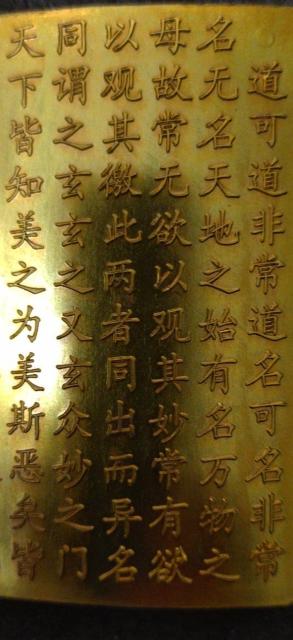 道可道非常道名可名非常
名无名天地之始有名万物之
母故常无欲以观其妙常有欲
以观其徼此两者同出而异名
同谓之玄玄之又玄众妙之门
天下皆知美之为美斯恶矣皆